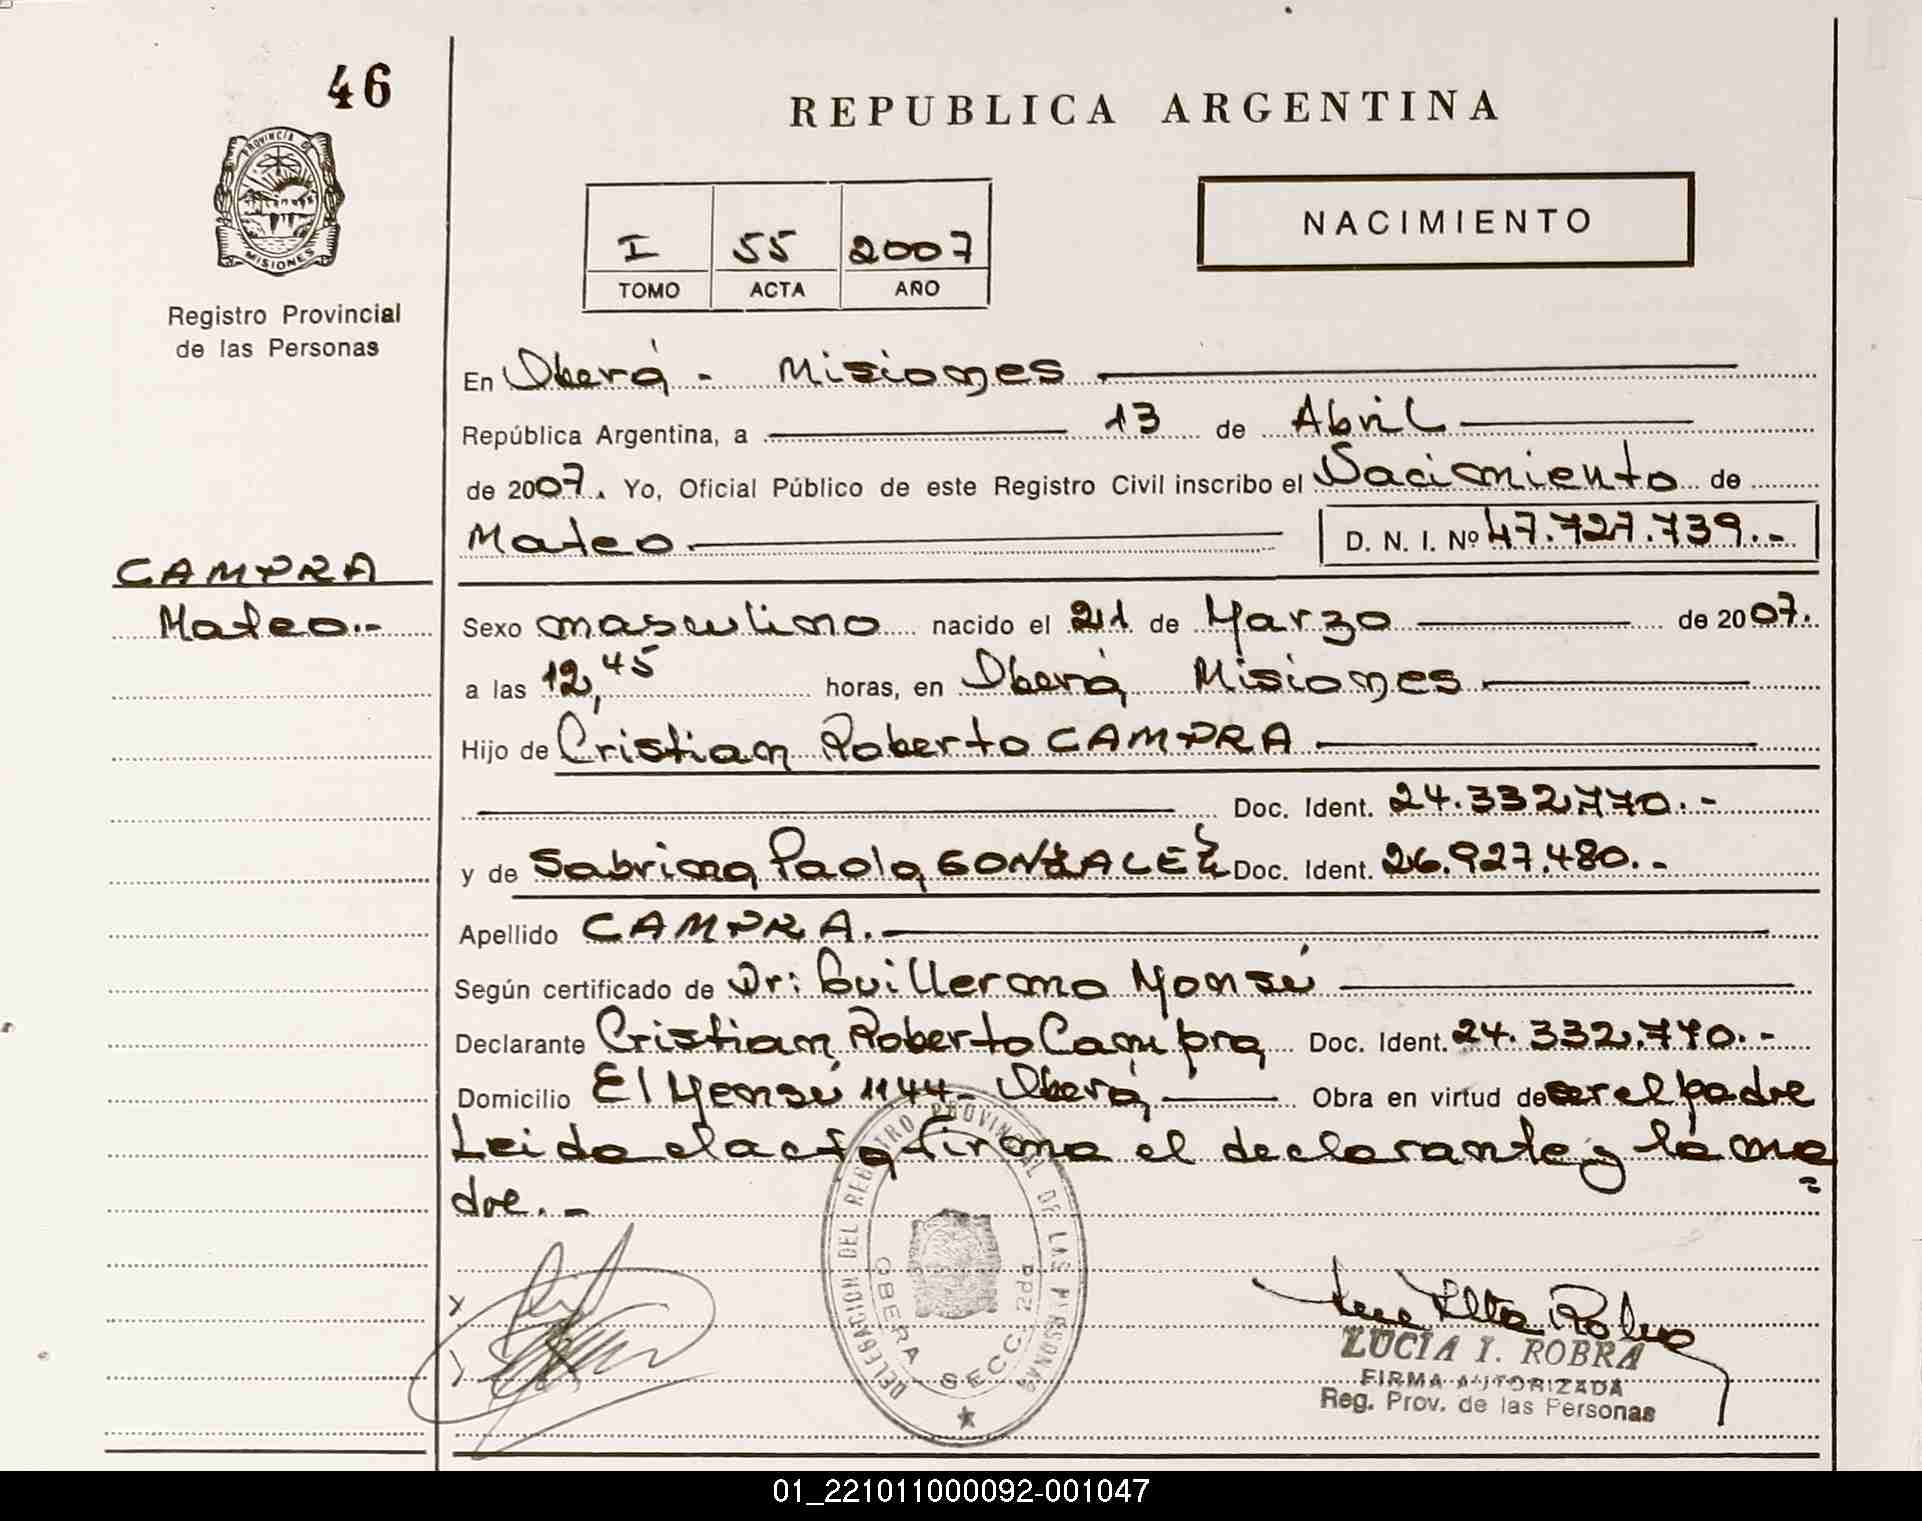 46
PROVINCIA DE
MISIONES
Registro Provincial
de las Personas
REPUBLICA ARGENTINA
I 55 2007
TOMO ACTA AÑO
NACIMIENTO
En Oberá - Misiones
República Argentina, a 13 de Abril
de 2007. Yo, Oficial Público de este Registro Civil inscribo el Nacimiento de
Mateo D. N. I. Nº 47.727.739.-
CAMPRA
Mateo.-
Sexo masculino nacido el 21 de Marzo de 2007.
a las 12,45 horas, en Oberá Misiones
Hijo de Cristian Roberto CAMPRA
Doc. Ident. 24.332.770.-
y de Sabrina Paola GONZALEZ Doc. Ident. 26.927.480.-
Apellido CAMPRA.
Según certificado de Dr: Guillermo Monsú
Declarante Cristian Roberto Campra Doc. Ident. 24.332.770.-
Domicilio El Mensú 1144- Oberá Obra en virtud de ser el padre
Leida el acta firma el declarante y la ma
dre.-
DELEGACION DEL REGISTRO PROVINCIAL DE LAS PERSONAS
OBERA SECC. 2da
LUCIA I. ROBRA
FIRMA AUTORIZADA
Reg. Prov. de las Personas
01_221011000092-001047